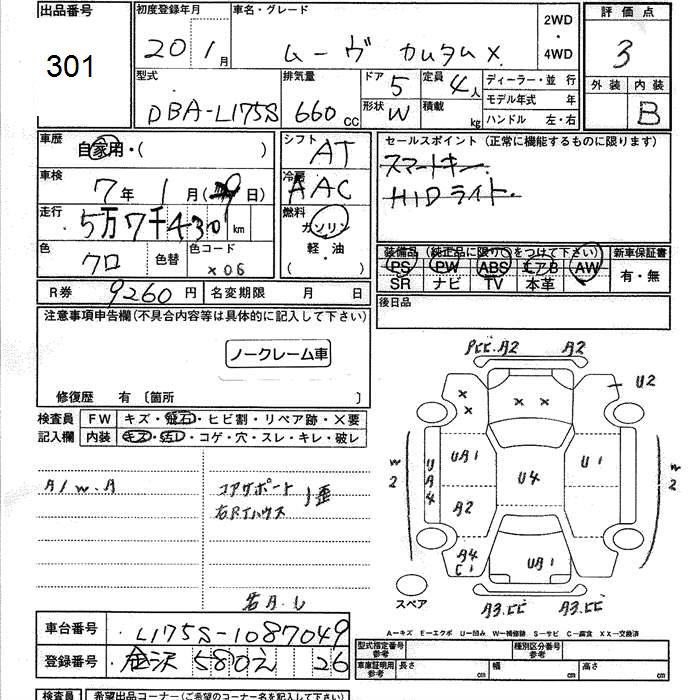 出品番号
301
初度登録年月
20年1月
車名・グレード
ムーヴ カスタムX
2WD
・
4WD
評価点
3
外装 内装
B
型式
DBA-L175S
排気量
660 CC
ドア 5
定員 4人
形状 W
積載 kg
ディーラー・並行
モデル年式 年
ハンドル 左・右
車歴
自家用・( )
シフト
AT
冷房
AAC
燃料
ガソリン
軽・油
( )
車検
7年 1月( 9日)
走行
5万7千430 km
色
クロ
色替
色コード
X06
R券 9260円
名変期限 月 日
セールスポイント (正常に機能するものに限ります)
スマートキー
HIDライト
装備品 (純正品に限り○をつけて下さい)
PS PW ABS エアB AW
SR ナビ TV 本革
新車保証書
有・無
後日品
注意事項申告欄(不具合内容等は具体的に記入して下さい)
ノークレーム車
修復歴 有 〔箇所 〕
検査員 FW キズ・飛石・ヒビ割・リペア跡・×要
記入欄 内装 キズ・汚レ・コゲ・穴・スレ・キレ・破レ
A1 W.A
コアサポート
右Rタイハウス
1歪
車台番号 L175S-1087049
登録番号 金沢 580え 26
A2 A2
× × ×
U2
W2
UA4
UA1
U4
U1
W2
A2
A4
C1
UA1
スペア
A3.ヒビ A3.ヒビ
A—キズ E—エクボ U—凹み W—補修跡 S—サビ C—腐食 XX—交換済
型式指定番号 参考
種別区分番号 参考
車庫証明用 参考
長さ cm
幅 cm
高さ cm
検査員
希望出品コーナー(ご希望のコーナー名を記入して下さい)